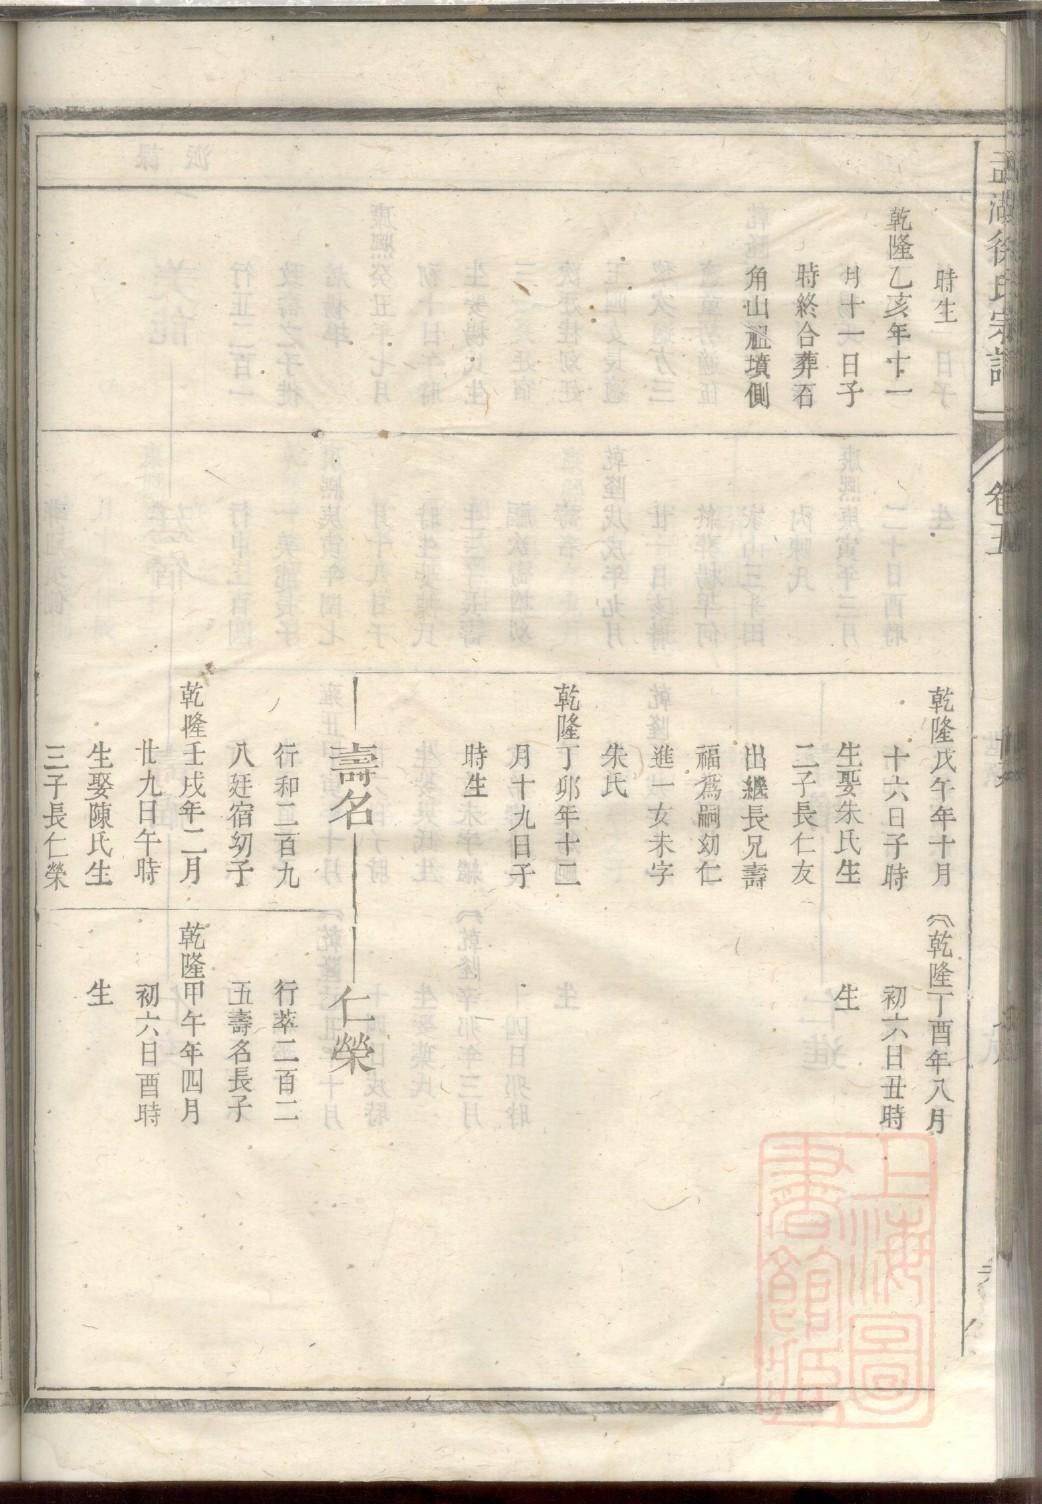 湖徐氏宗譜
卷五
時生
乾隆乙亥年十一
月十一日子
時終合葬石
角山祖墳側
乾隆戊午年十月
十六日子時
生娶朱氏生
二子長仁友
出繼長兄壽
福為嗣幼仁
進一女未字
朱氏
乾隆丁卯年十二
月十九日子
時生
壽名
行和二百九
八廷宿幼子
乾隆壬戌年二月
廿九日午時
生娶陳氏生
三子長仁榮
乾隆丁酉年八月
初六日丑時
生
仁榮
行萃二百二
五壽名長子
乾隆甲午年四月
初六日酉時
生
上海圖
書館藏